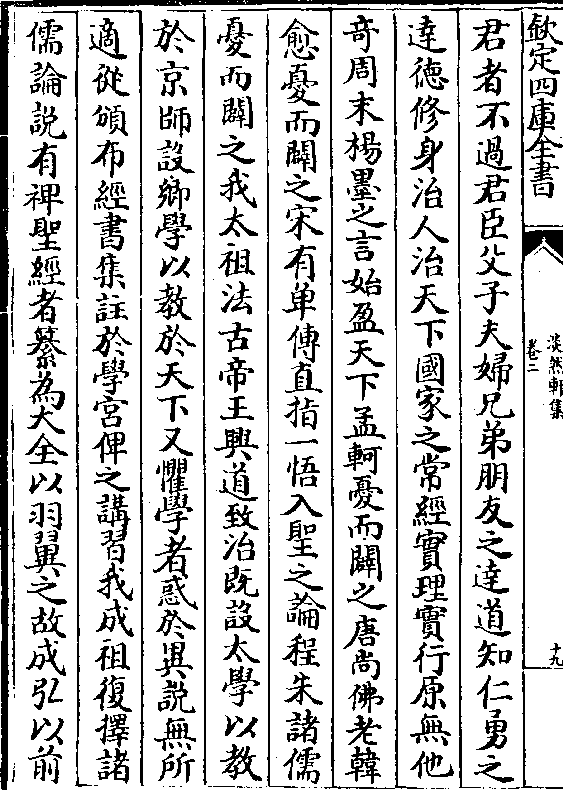 欽定四庫全書
淡然軒集
卷二
十九
君者不過君臣父子夫婦兄弟朋友之逹道知仁勇之
逹徳修身治人治天下國家之常經實理實行原無他
竒周末楊墨之言始盈天下孟軻憂而闢之唐尚佛老韓
愈憂而闢之宋有单傳直指一悟入聖之論程朱諸儒
憂而闢之我太祖法古帝王興道致治既設太學以教
於京師設鄉學以教於天下又懼學者惑於異説無所
適從頒布經書集註於學宫俾之講習我成祖復擇諸
儒論説有裨聖經者纂為大全以羽翼之故成弘以前